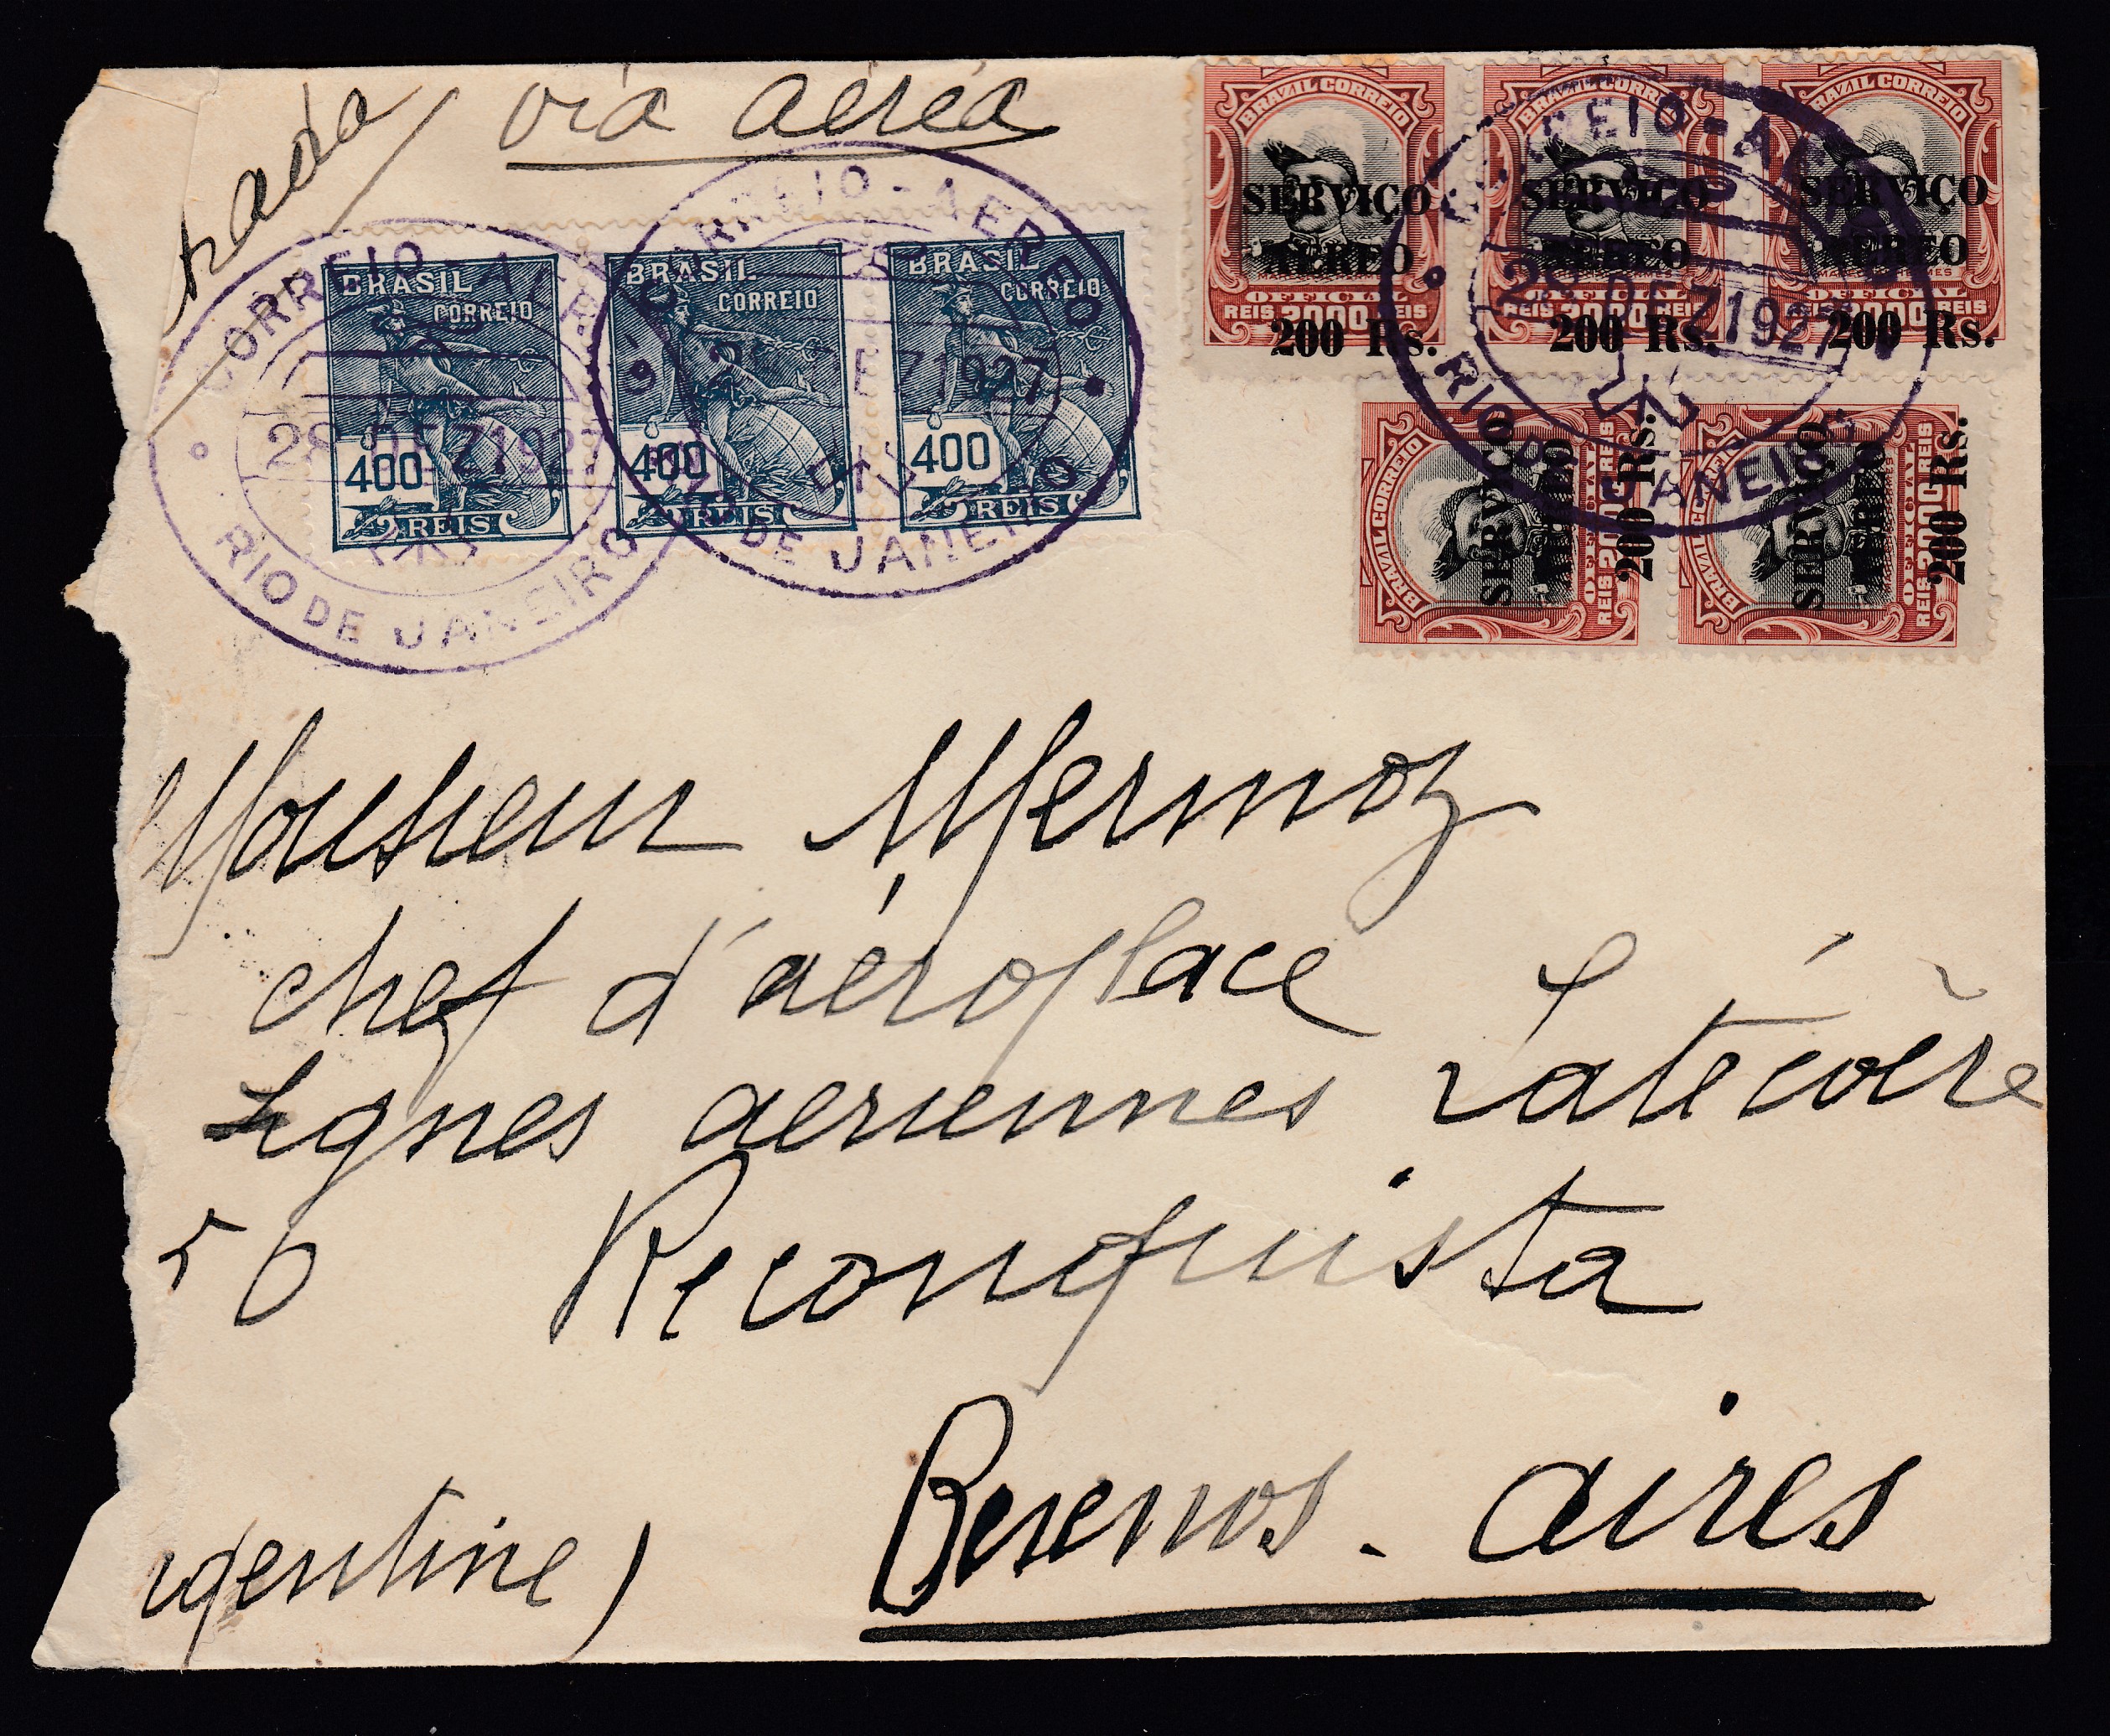 via aérea
BRASIL CORREIO 400 REIS
BRASIL CORREIO 400 REIS
BRASIL CORREIO 400 REIS
CORREIO-AEREO 28 DEZ1927 RIO DE JANEIRO
CORREIO-AEREO 28 DEZ1927 RIO DE JANEIRO
BRAZIL CORREIO SERVIÇO AEREO OFFICIAL REIS 2000 REIS 200 Rs.
BRAZIL CORREIO SERVIÇO AEREO OFFICIAL REIS 2000 REIS 200 Rs.
BRAZIL CORREIO SERVIÇO AEREO OFFICIAL REIS 2000 REIS 200 Rs.
CORREIO-AEREO 28 DEZ1927 RIO DE JANEIRO
BRAZIL CORREIO SERVIÇO AEREO OFFICIAL REIS 2000 REIS 200 Rs.
BRAZIL CORREIO SERVIÇO AEREO OFFICIAL REIS 2000 REIS 200 Rs.
Monsieur Mermoz
chef d'aéroplace
Lignes aeriennes Latécoère
50 Reconquista
Buenos-aires
gentine)